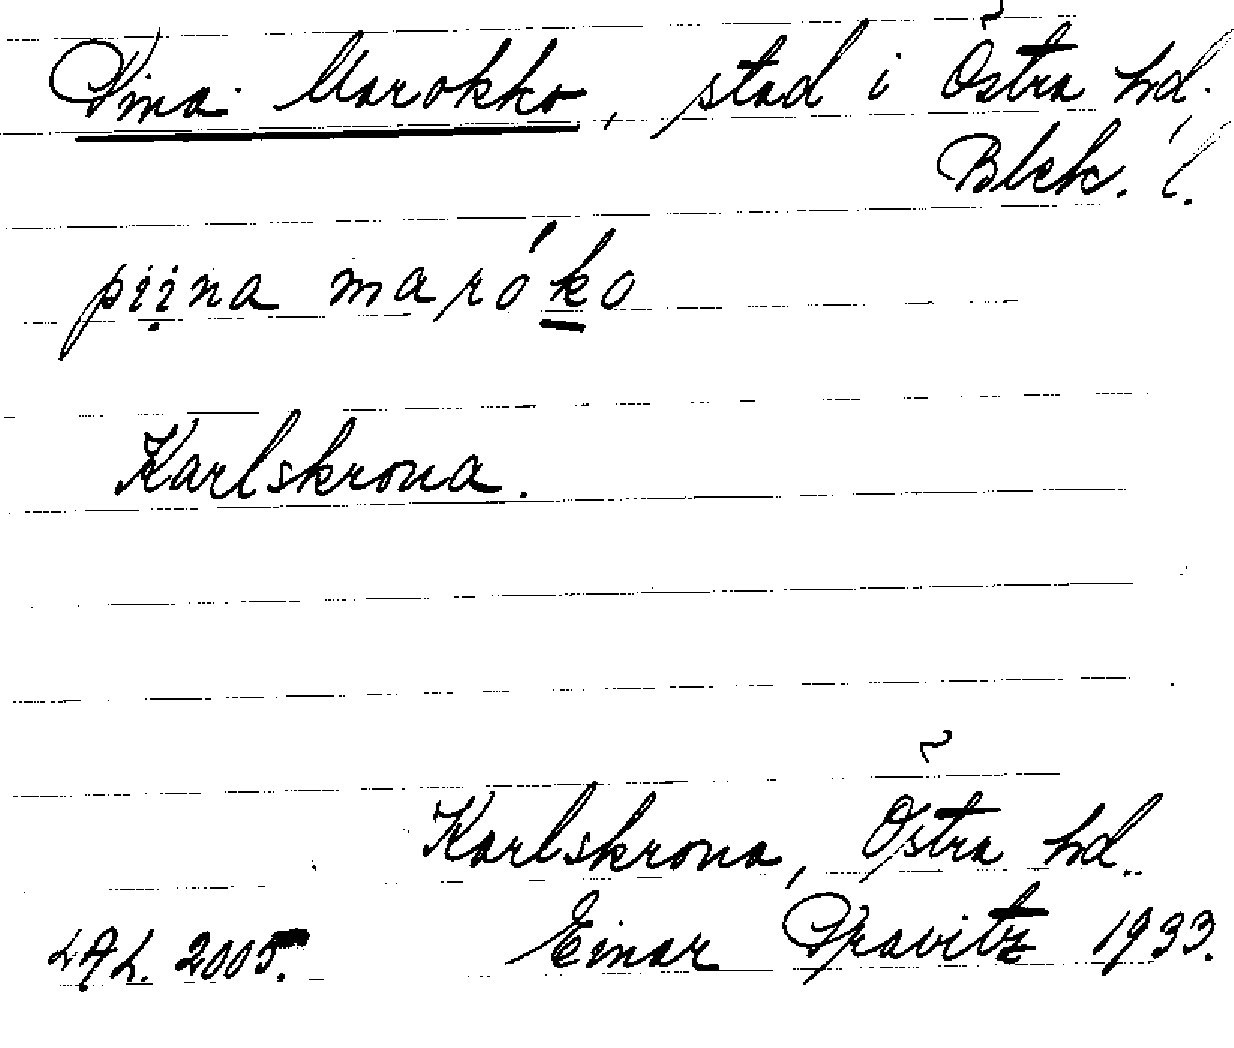 Pina Marokko, stad i Östra hd.
Blek. l.
piina maróko
Karlskrona.
Karlskrona, Östra hd.
LAL. 2005. Einar Pravitz 1933.